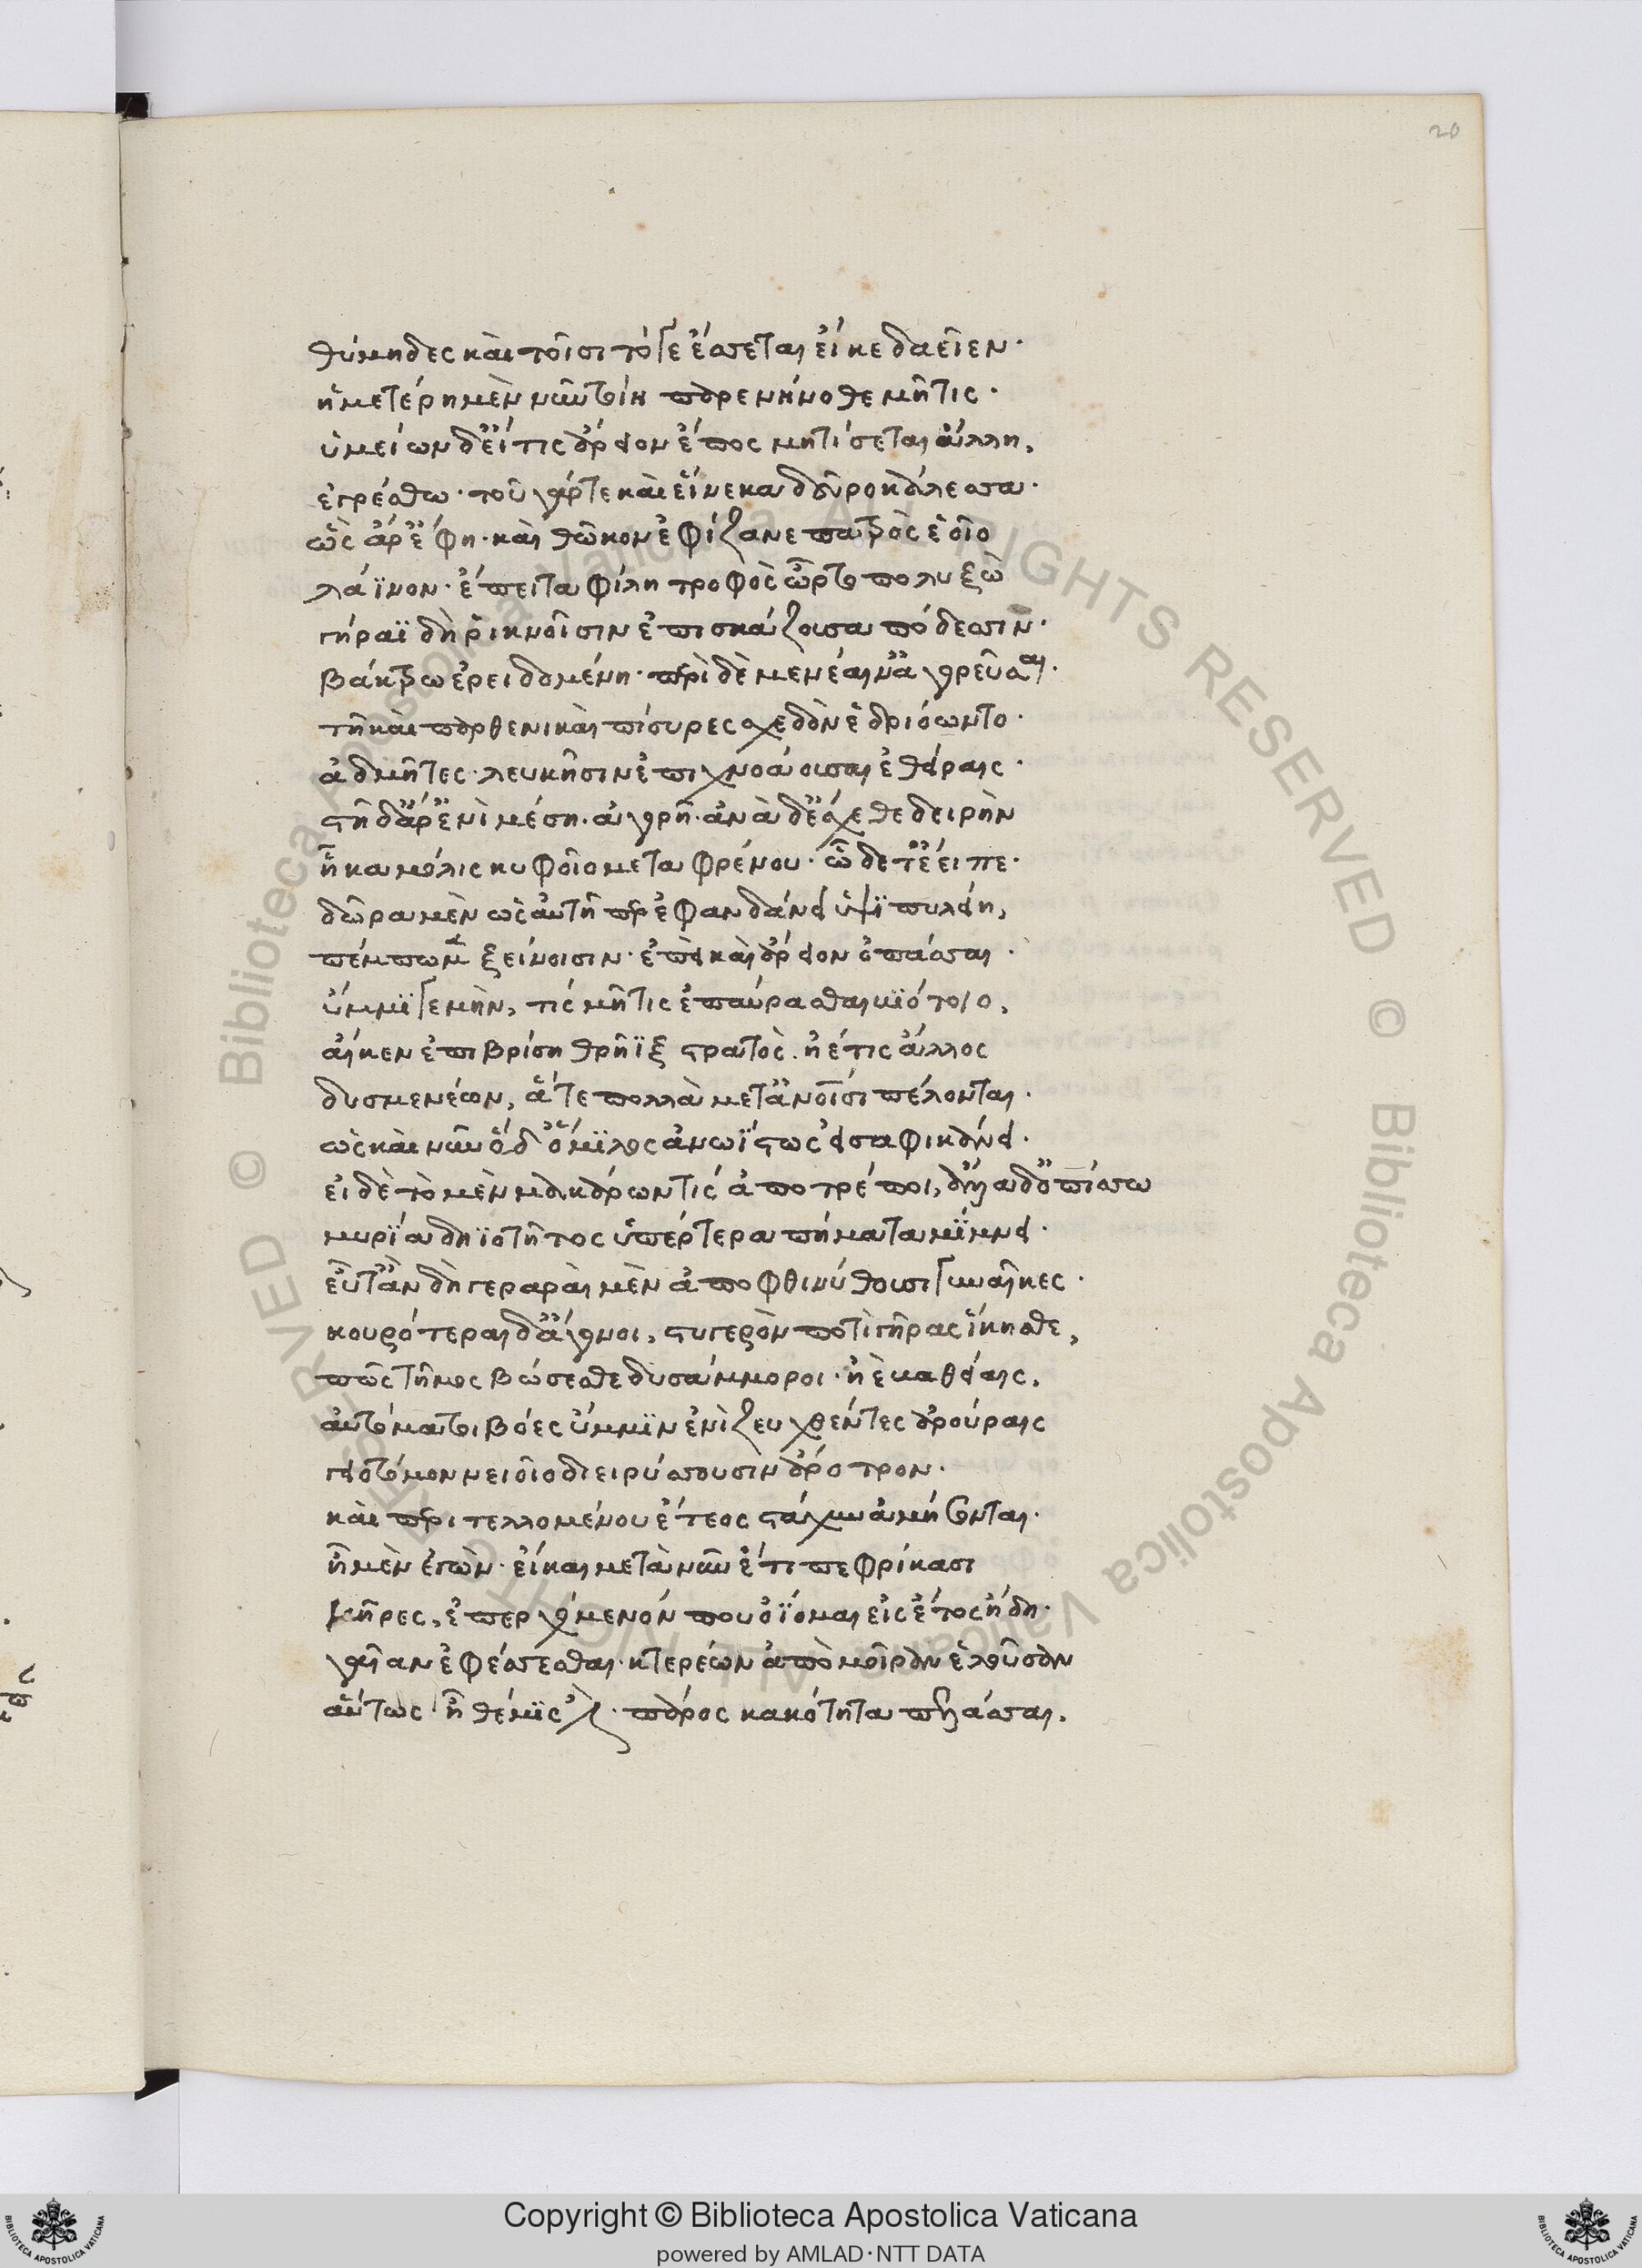 20
θύμηδες καὶ τοῖσι τόγε ἔσσεται εἴ κε δαεῖεν·
ἡμετέρη μὲν νῦν τοίη παρενήνοθε μῆτις·
ὑμείων δ' εἴ τις ἄρειον ἔπος μητίσεται ἄλλη,
ἐγρέσθω· τοῦ γάρ τε καὶ εἵνεκα δεῦρο καλέσσα·
ὣς ἄρ' ἔφη· καὶ θῶκον ἐφίζανε πατρὸς ἑοῖο
λάϊνον· ἔπειτα φίλη τροφὸς ὦρτο πολυξὼ
γήραϊ δὴ ῥικνοῖσιν ἐπισκάζουσα πόδεσσιν·
βάκτρω ἐρειδομένη· περὶ δὲ μενέαιν' ἀγορεῦσαι·
τῆ καὶ παρθενικαὶ πίσυρες σχεδὸν ἑδριόωντο·
ἀδμῆτες λευκῆσιν ἐπιχνοάουσαι ἐθείραις·
στῆ δ' ἄρ' ἐνὶ μέση ἀγορῆ· ἀνὰ δ' ἔσχεθε δειρὴν
ἦκα μόλις κυφοῖο μεταφρένου· ὧδέ τ' ἔειπε·
δῶρα μὲν ὡς αὐτῆ περ ἐφανδάνει ὑψιπυλείη,
πέμπωμεν ξείνοισιν· ἐπεὶ καὶ ἄρειον ὀπάσσαι·
ὔμμι γε μὴν, τίς μῆτις ἐπαύρασθαι βιότοιο,
αἴ κεν ἐπιβρίση θρήϊξ στρατὸς· ἠέ τις ἄλλος
δυσμενέων, ἅ τε πολλὰ μετ' ἀνθρώποισι πέλονται·
ὡς καὶ νῦν ὅδ' ὅμιλος ἀνωΐστως εἰσαφικάνει·
εἰ δὲ τὸ μὲν μακάρων τίς ἀποτρέποι, ἄλλα δ' ὀπίσσω
μυρία δηϊοτῆτος ὑπέρτερα πήματα μίμνει·
εὖτ' ἂν δὴ γεραραὶ μὲν ἀποφθινύθουσι γυναῖκες·
κουρότεραι δ' ἄγονοι, στυγερὸν ποτὶ γῆρας ἵκησθε,
πῶς τῆμος βώσεσθε δυσάμμοροι· ἠὲ βαθείαις,
αὐτόματοι βόες ὔμμιν ἐνιζευχθέντες ἀρούραις
γειοτόμον νειοῖο διειρύσσουσιν ἄροτρον·
καὶ περιτελλομένου ἔτεος στάχυν ἀμήσονται·
ἦ μὲν ἐγὼν· εἰ καί με τὰ νῦν ἔτι πεφρίκασι
κῆρες, ἐπερχόμενόν που ὀΐομαι εἰς ἔτος ἤδη·
γαῖαν ἐφέσσεσθαι κτερέων ἀπὸ μοῖραν ἑλοῦσαν
αὔτως ἣ θέμις ἐστὶ· πάρος κακότητα πελάσσαι.
Copyright © Biblioteca Apostolica Vaticana
powered by AMLAD·NTT DATA